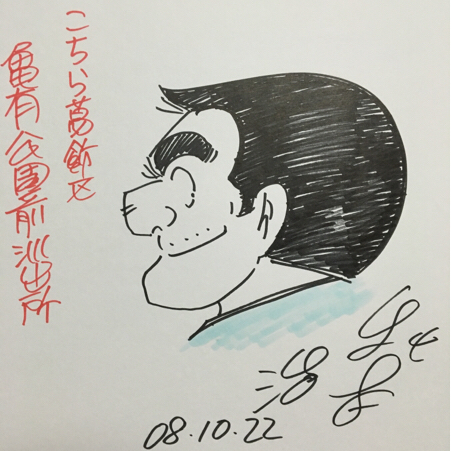 こちら葛飾区
亀有公園前派出所
08.10.22